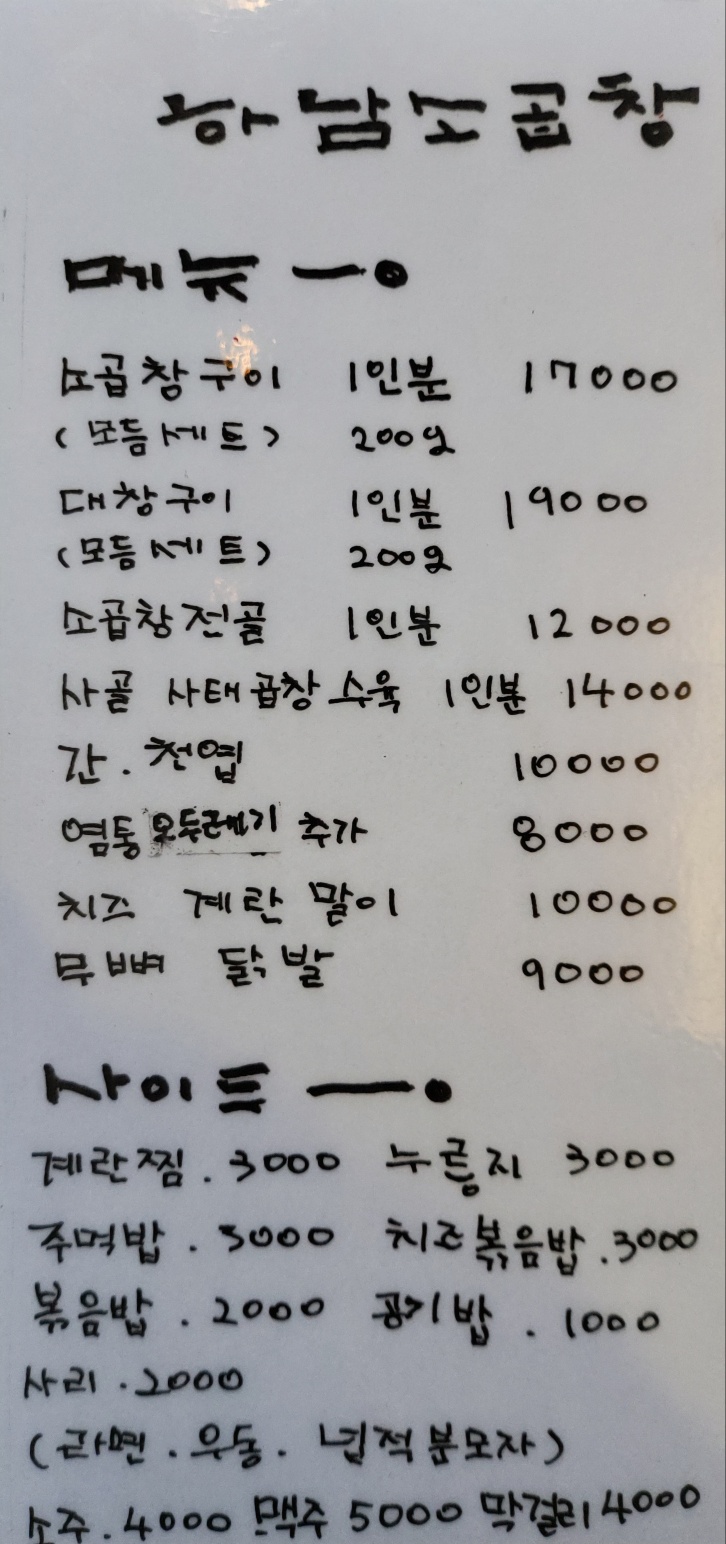 하남소곱창
메뉴 —•
소곱창구이 1인분 17000
(모듬세트) 200g
대창구이 1인분 19000
(모듬세트) 200g
소곱창전골 1인분 12000
사골 사태곱창 수육 1인분 14000
간.천엽 10000
염통 오두레기 추가 8000
치즈 계란 말이 10000
무뼈 닭발 9000
사이트 —•
계란찜.3000 누룽지 3000
주먹밥.3000 치즈볶음밥.3000
볶음밥.2000 공기밥.1000
사리.2000
(라면.우동.넙적분모자)
소주.4000 맥주 5000 막걸리 4000